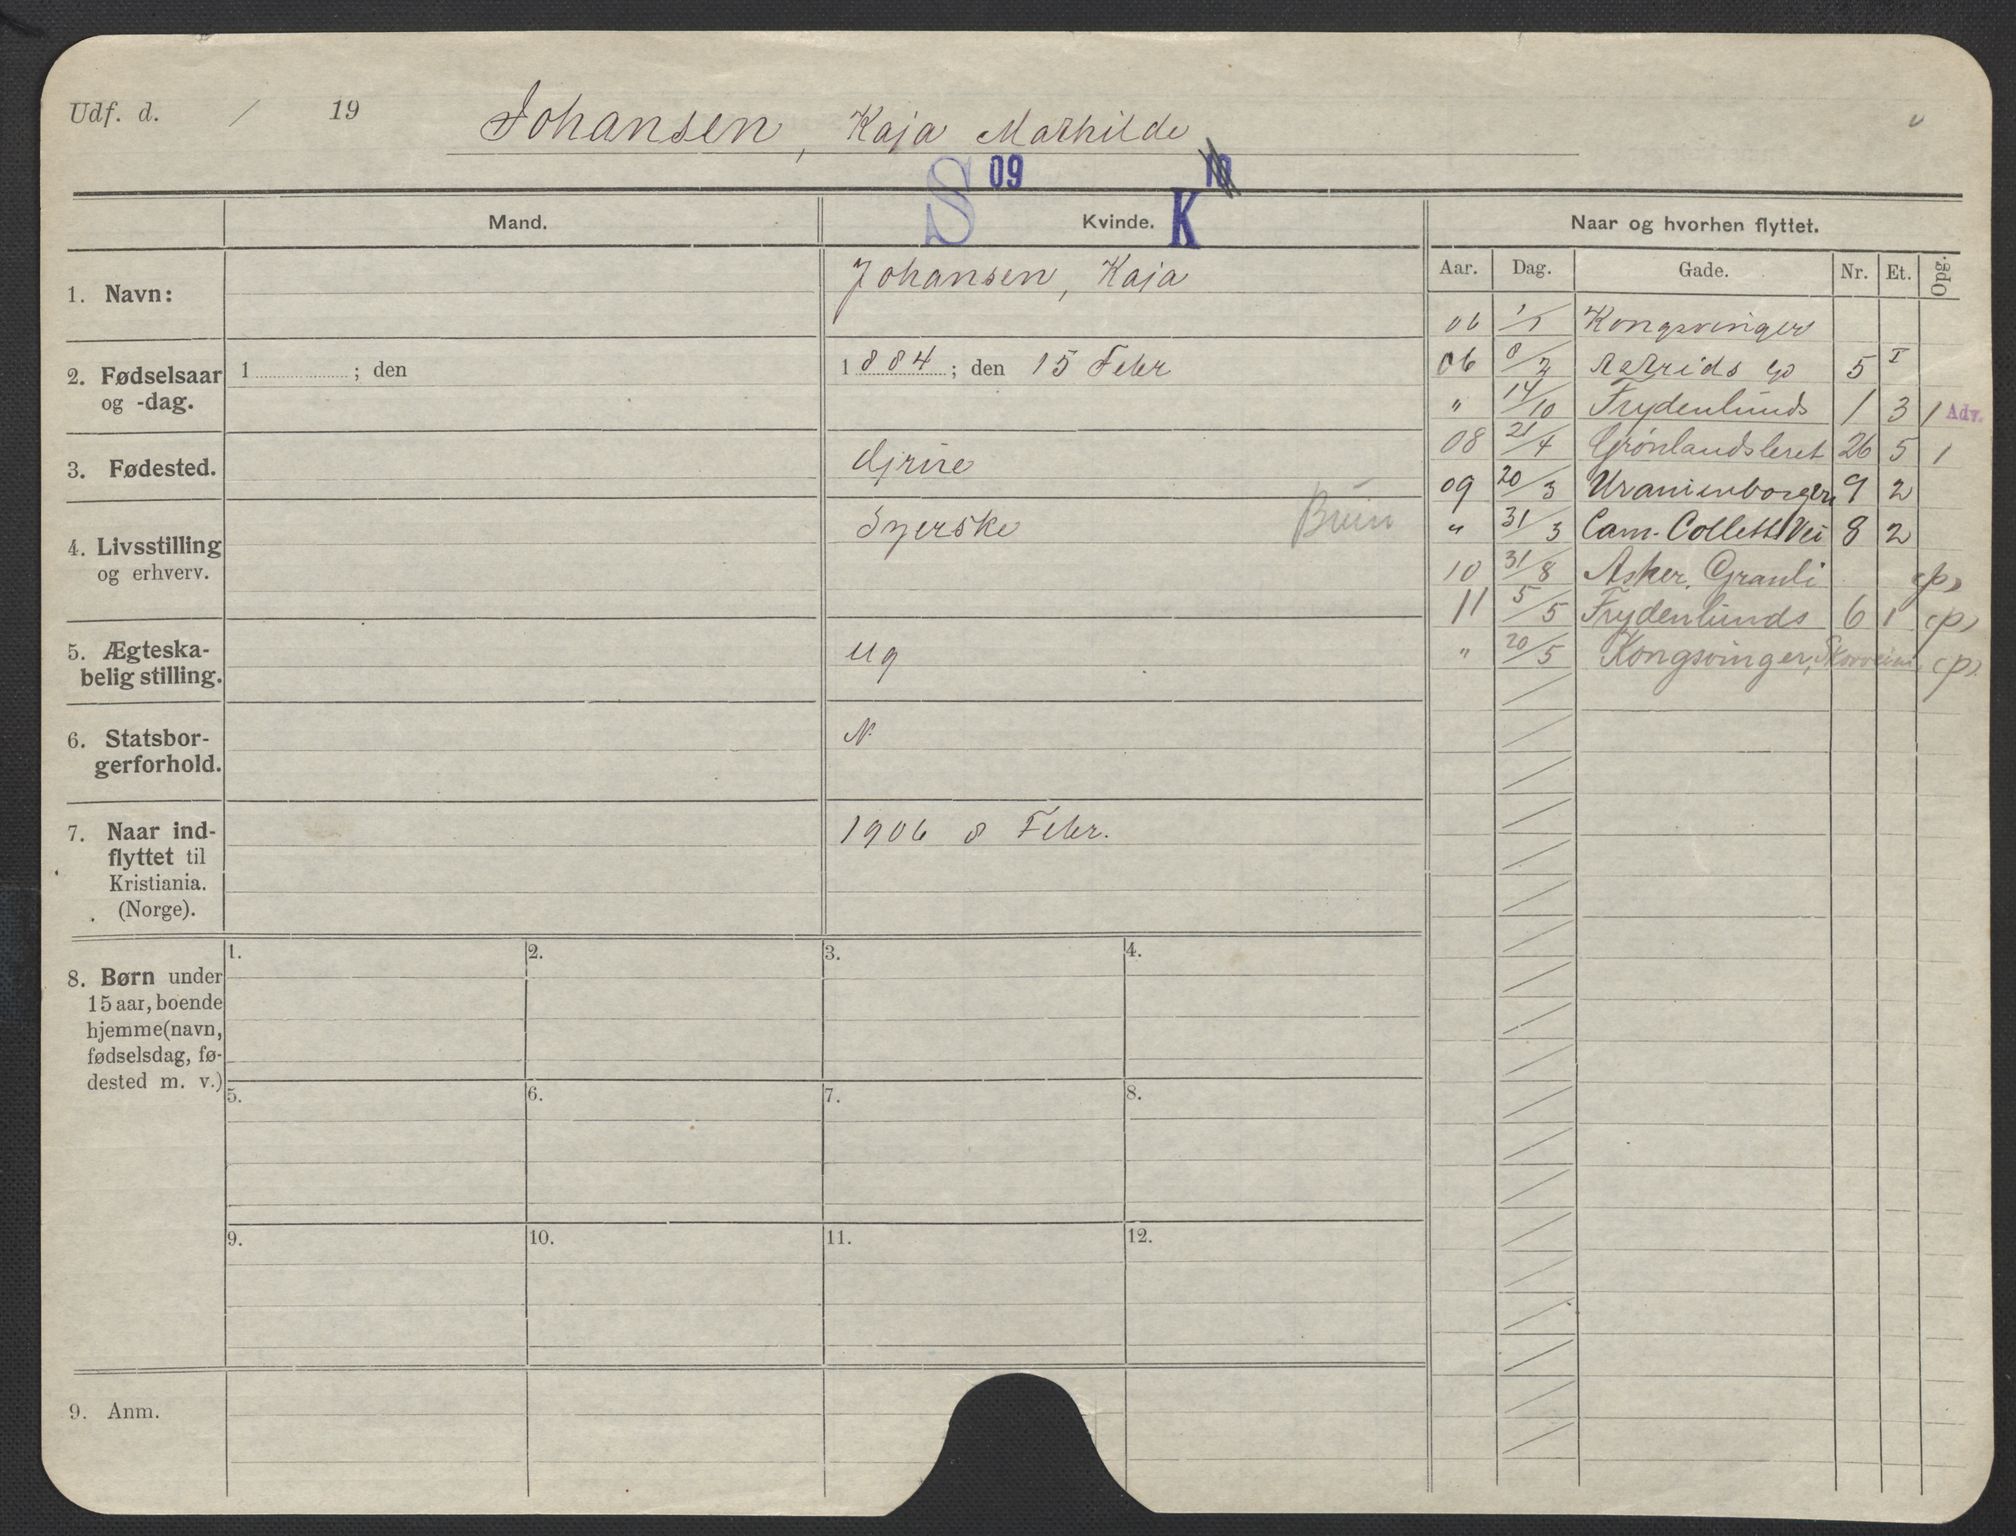 Udf. d. / 19 Johansen, Kaja Mathilde
S 09 K
Mand. Kvinde. Naar og hvorhen flyttet.
Aar. Dag. Gade. Nr. Et. Opg.
1. Navn: Johansen, Kaja
2. Fødselsaar og -dag. 1 ; den 1884; den 15 Febr
3. Fødested. Grue
4. Livsstilling og erhverv. Syerske
5. Ægteskabelig stilling. Ug
6. Statsborgerforhold. N.
7. Naar indflyttet til Kristiania. (Norge). 1906 8 Febr.
8. Børn under 15 aar, boende hjemme (navn, fødselsdag, fødested m. v.)
1. 2. 3. 4.
5. 6. 7. 8.
9. 10. 11. 12.
9. Anm.
06 1/1 Kongsvinger
06 8/2 Astrids g 5 I
" 14/10 Frydenlunds 1 3 1 Adv.
08 21/4 Grønlandsleret 26 5 1
09 20/3 Uranienborgv 9 2
" 31/3 Cam. Colletts Vei 8 2
10 31/8 Asker, Granli (p)
11 5/5 Frydenlunds 6 1 (p)
" 20/5 Kongsvinger, (p)